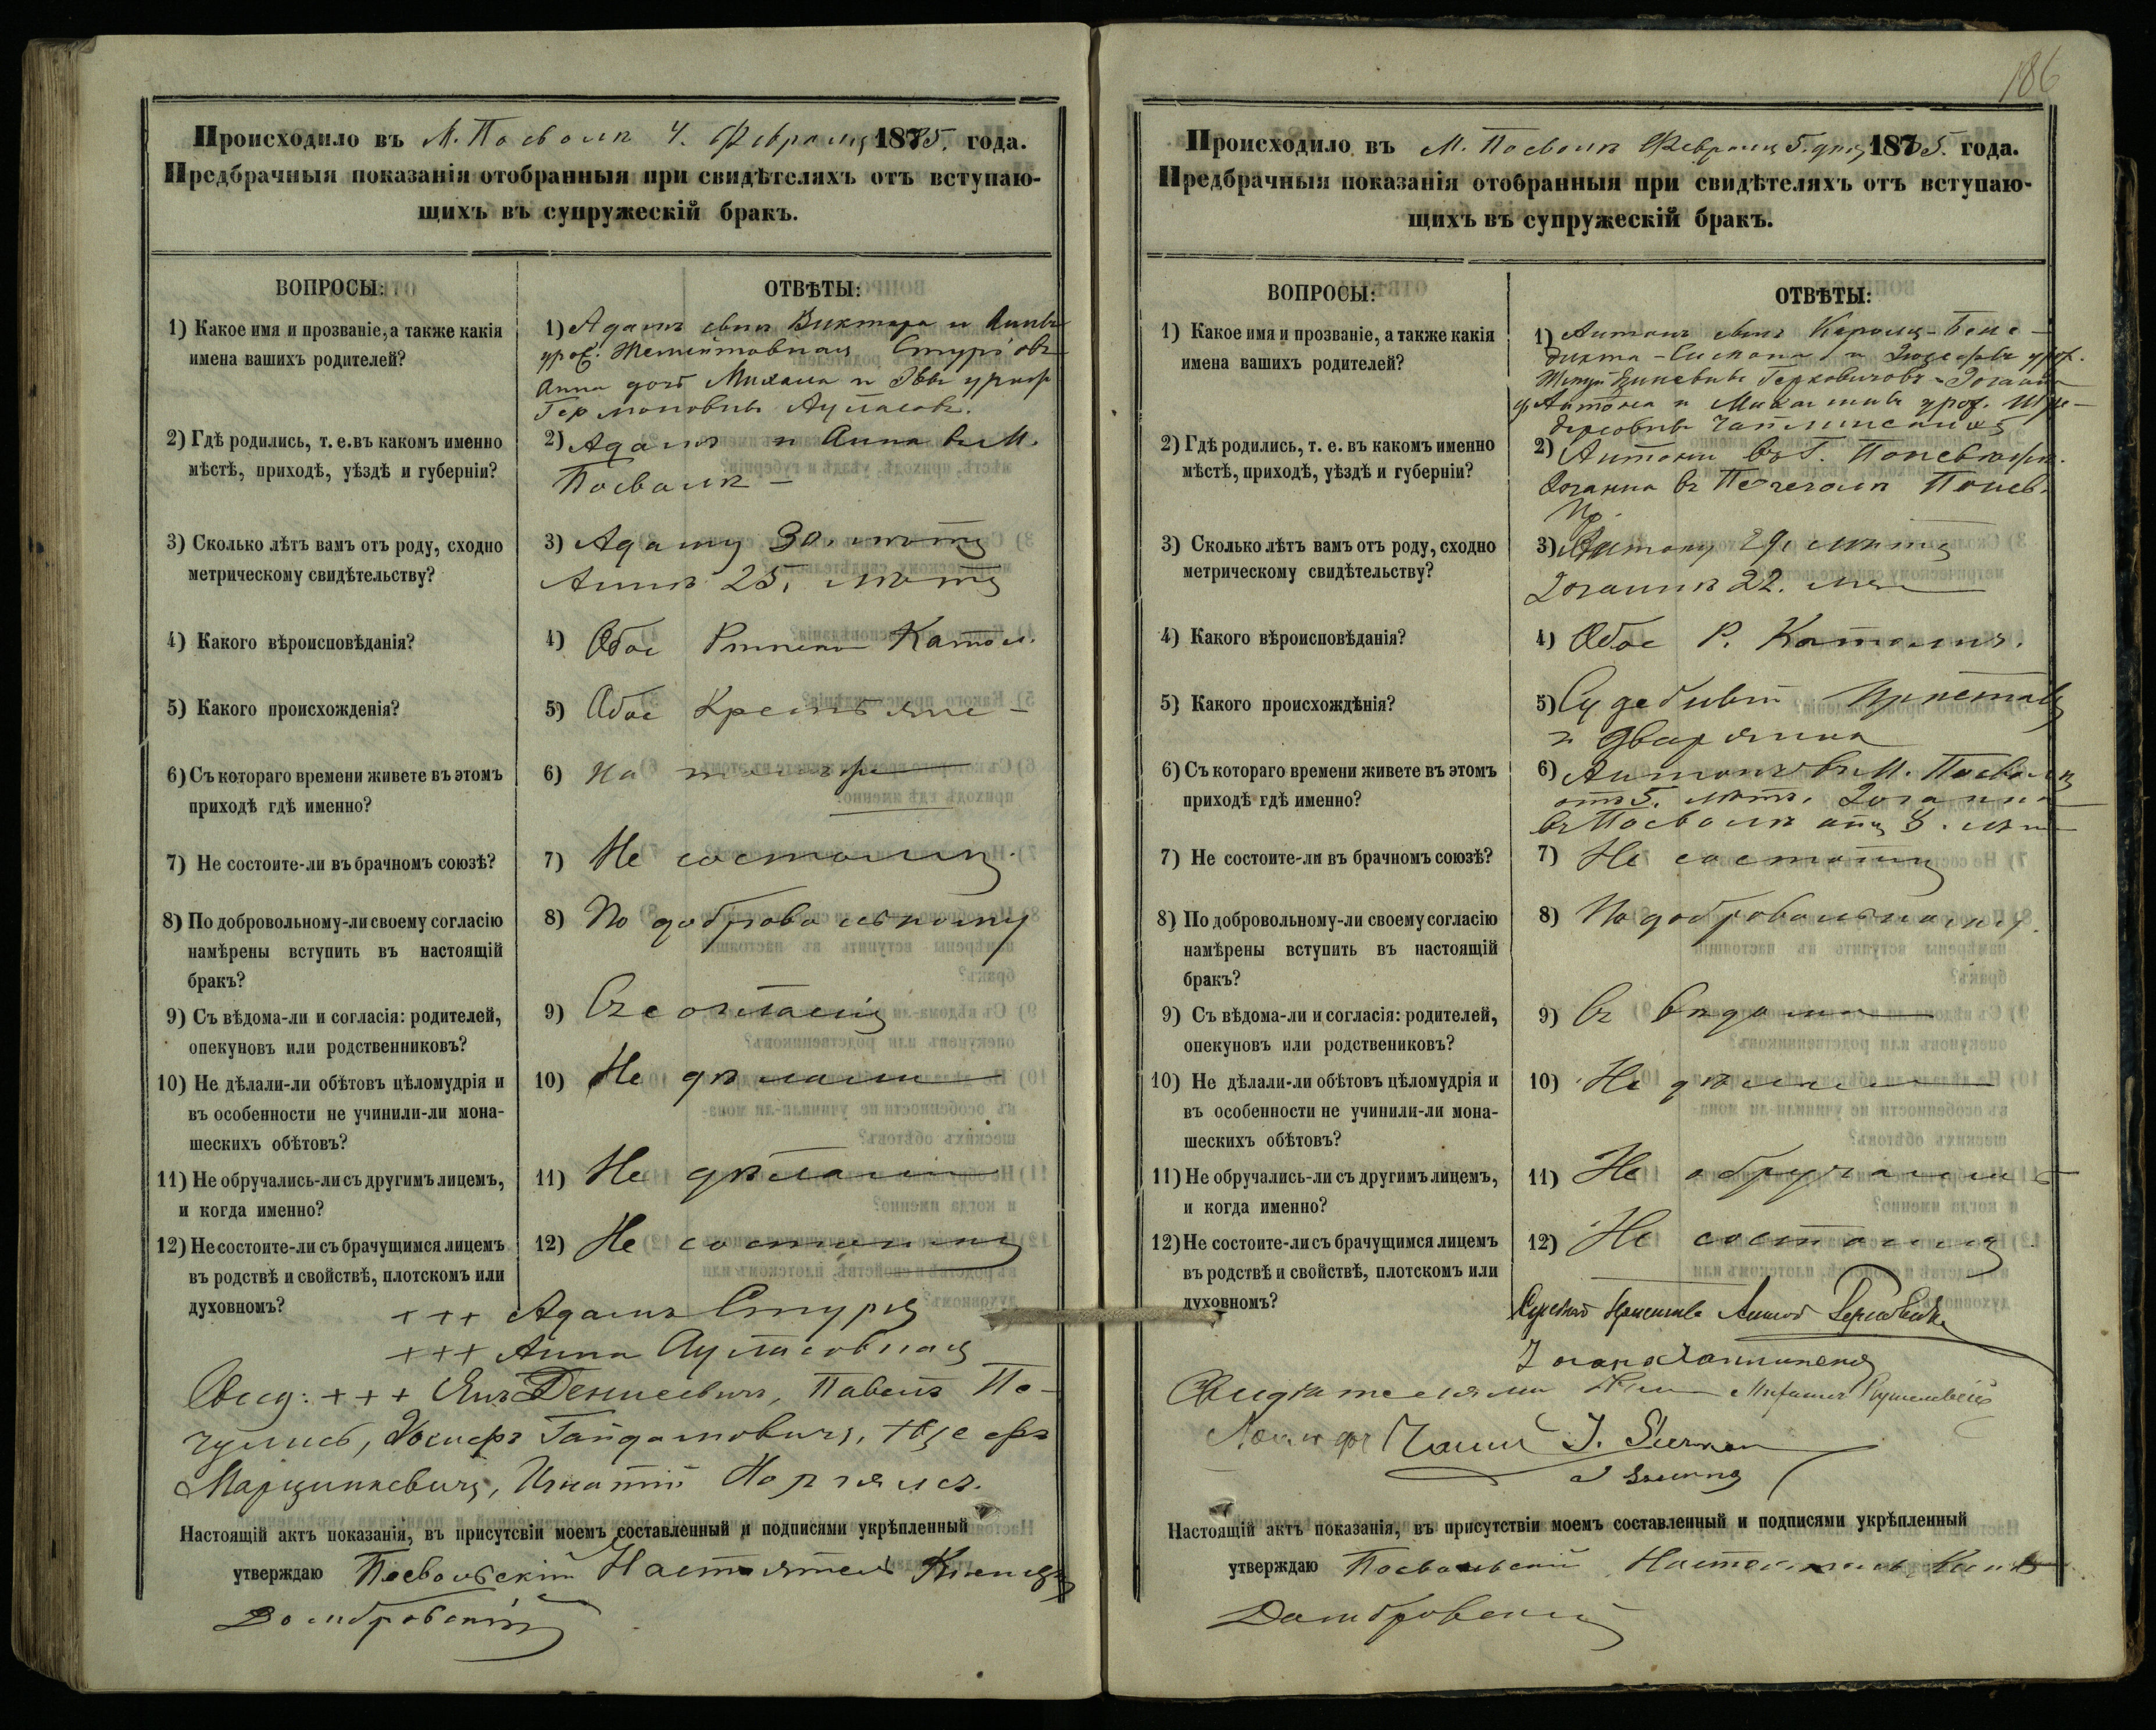 186
Происходило въ М. Посволѣ 4. Февраля 1875. года.
Предбрачныя показанія отобранныя при свидѣтеляхъ отъ вступаю-
щихъ въ супружескій бракъ.
ВОПРОСЫ:
ОТВѢТЫ:
1) Какое имя и прозваніе, а также какія
имена вашихъ родителей?
1) Адамъ сынъ Виктора и Анны
урож.
Анна дочь Михаила и Эвы урож
2) Гдѣ родились, т. е. въ какомъ именно
мѣстѣ, приходѣ, уѣздѣ и губерніи?
2) Адамъ и Анна въ М.
Посволѣ —
3) Сколько лѣтъ вамъ отъ роду, сходно
метрическому свидѣтельству?
3) Адаму 30. лѣтъ
Аннѣ 25. лѣтъ
4) Какого вѣроисповѣданія?
4) Обое Римско Катол.
5) Какого происхожденія?
5) Обое Крестьяне —
6) Съ котораго времени живете въ этомъ
приходѣ гдѣ именно?
6)
7) Не состоите-ли въ брачномъ союзѣ?
7) Не состоимъ
8) По добровольному-ли своему согласію
намѣрены вступить въ настоящій
бракъ?
8) По добровольному
9) Съ вѣдома-ли и согласія: родителей,
опекуновъ или родственниковъ?
9) Съ согласія
10) Не дѣлали-ли обѣтовъ цѣломудрія и
въ особенности не учинили-ли мона-
шескихъ обѣтовъ?
10) Не дѣлали
11) Не обручались-ли съ другимъ лицемъ,
и когда именно?
11) Не дѣлали
12) Не состоите-ли съ брачущимся лицемъ
въ родствѣ и свойствѣ, плотскомъ или
духовномъ?
12) Не состоимъ
+++ Адамъ
+++ Анна
Свид: +++ Янъ Денисевичъ, Павелъ По-
Гайдамовичъ,
Марцинкевичъ, Игнатій
Настоящій актъ показанія, въ присутсвіи моемъ составленный и подписями укрѣпленный
утверждаю Посвольскій Настоятель Ксендзъ
Домбровскій
Происходило въ М. Посволѣ Февраля 5. дня 1875. года.
Предбрачныя показанія отобранныя при свидѣтеляхъ отъ вступаю-
щихъ въ супружескій бракъ.
ВОПРОСЫ:
ОТВѢТЫ:
1) Какое имя и прозваніе, а также какія
имена вашихъ родителей?
1) Антонъ сынъ Кароля-Бене-
дикта- и Юзефы урож.
Антона и Михалины урож.
2) Гдѣ родились, т. е. въ какомъ именно
мѣстѣ, приходѣ, уѣздѣ и губерніи?
2) Антонъ въ Г.
Іоганна въ
3) Сколько лѣтъ вамъ отъ роду, сходно
метрическому свидѣтельству?
3) Антону 29. лѣтъ
Іоганнѣ 22.
4) Какого вѣроисповѣданія?
4) Обое Р. Катол.
5) Какого происхождѣнія?
5) Судебный Приставъ
и Дворянка
6) Съ котораго времени живете въ этомъ
приходѣ гдѣ именно?
6) Антонъ въ М. Посволѣ
отъ 5. лѣтъ. Іоганна
въ Посволѣ отъ 8. лѣтъ
7) Не состоите-ли въ брачномъ союзѣ?
7) Не состоимъ
8) По добровольному-ли своему согласію
намѣрены вступить въ настоящій
бракъ?
8) По добровольному.
9) Съ вѣдома-ли и согласія: родителей,
опекуновъ или родствениковъ?
9) Съ вѣдома
10) Не дѣлали-ли обѣтовъ цѣломудрія и
въ особенности не учинили-ли мона-
шескихъ обѣтовъ?
10) Не дѣлали
11) Не обручались-ли съ другимъ лицемъ,
и когда именно?
11) Не обручались
12) Не состоите-ли съ брачущимся лицемъ
въ родствѣ и свойствѣ, плотскомъ или
духовномъ?
12) Не состоимъ
Судебный Приставъ Антонъ
Свидѣтелями
Настоящій актъ показанія, въ присутствіи моемъ составленный и подписями укрѣпленный
утверждаю Посвольскій Настоятель
Домбровскій